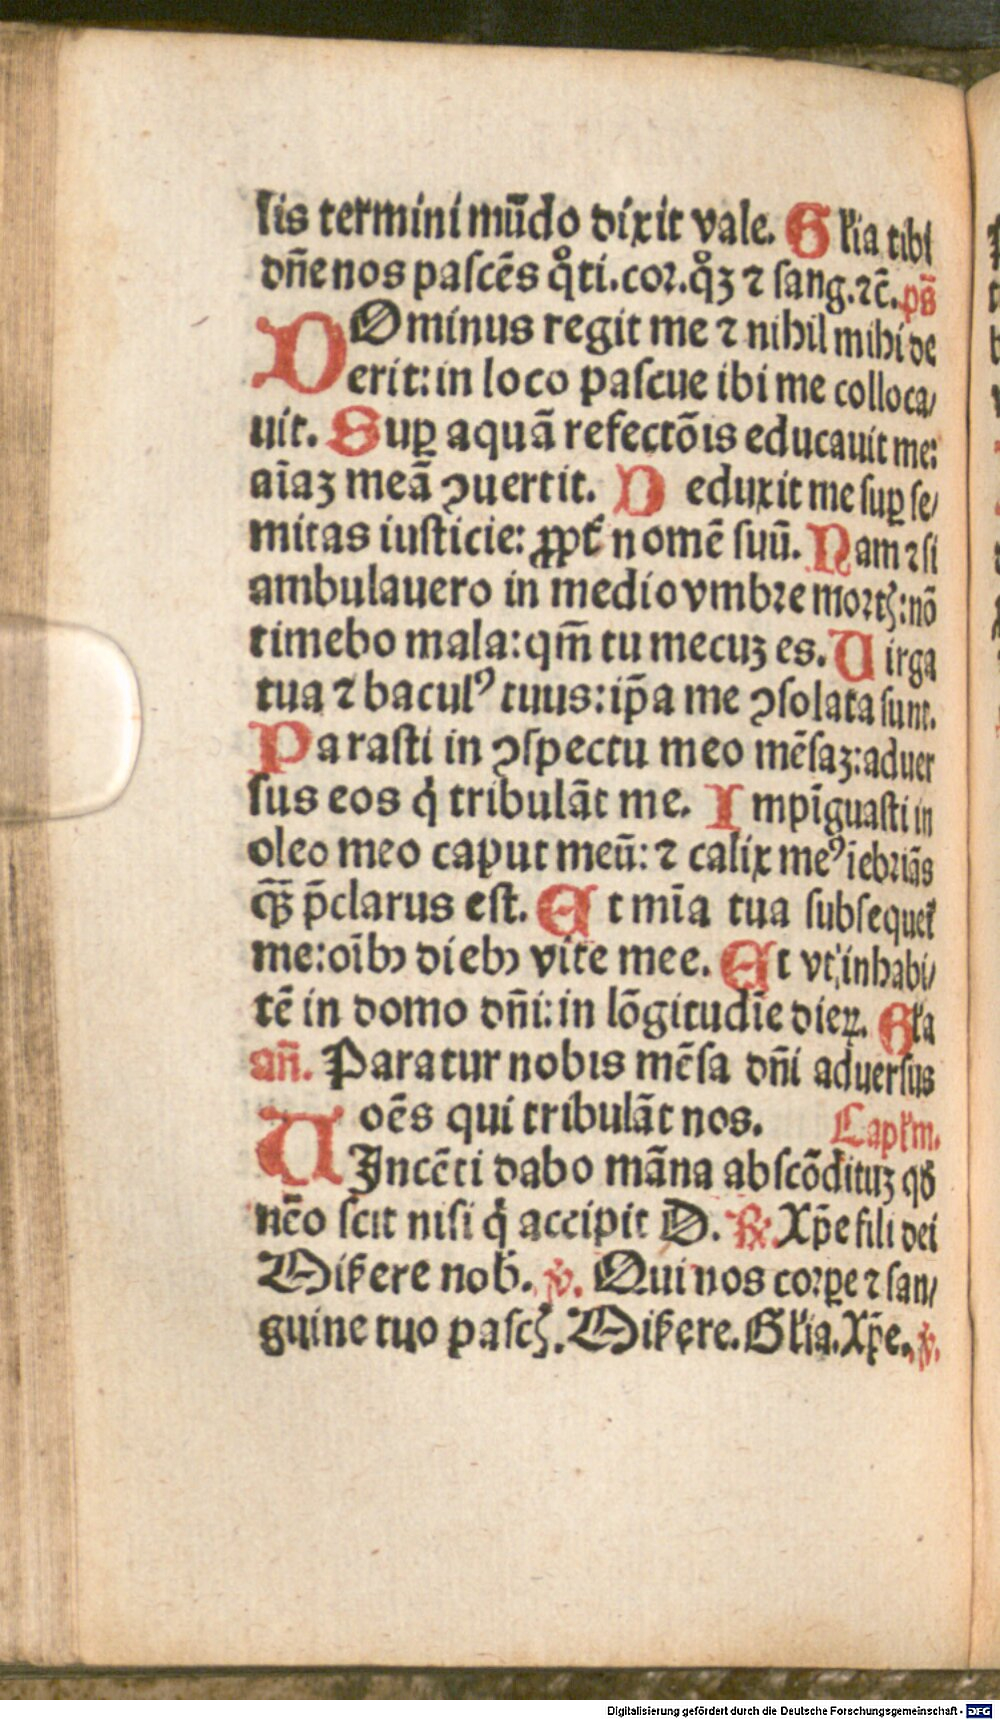 lis termini mūdo dixit vale. Gꝉia tibi
dn̄e nos pascēs qͦti.cor.qͦꝫ ⁊ sang.⁊c̄. ps̄
DOminus regit me ⁊ nihil mihi de
erit: in loco pascue ibi me colloca/
uit. Suꝑ aquā refectōis educauit me:
aīaꝫ meā ꝯuertit. Deduxit me suꝑ se/
mitas iusticie: ꝓpt̉ nomē suū. Nam ⁊ si
ambulauero in medio vmbre mortꝭ: nō
timebo mala: qm̄ tu mecuꝫ es. Uirga
tua ⁊ baculꝰ tuus: ip̄a me ꝯsolata sunt.
Parasti in ꝯspectu meo mēsaꝫ: aduer
sus eos q̇ tribulāt me. Impīguasti in
oleo meo caput meū: ⁊ calix meꝰ īebriās
qͣꝫ p̄clarus est. Et mīa tua subsequet̉
me: oībꝰ diebꝰ vite mee. Et vt̉ inhabi/
tē in domo dn̄i: in lōgitudīe dieꝝ. Gꝉa
an̄. Paratur nobis mēsa dn̄i aduersus
oēs qui tribulāt nos. Capꝉm.
UIncēti dabo māna abscōdituꝫ qḋ
nēo scit nisi q̇ accipit D. ℟. Xp̄e fili dei
Miẜere nob̉. ℣. Qui nos corꝑe ⁊ san/
guine tuo pascꝭ. Miẜere. Gꝉia. Xp̄e. ℣.
Digitalisierung gefördert durch die Deutsche Forschungsgemeinschaft - DFG